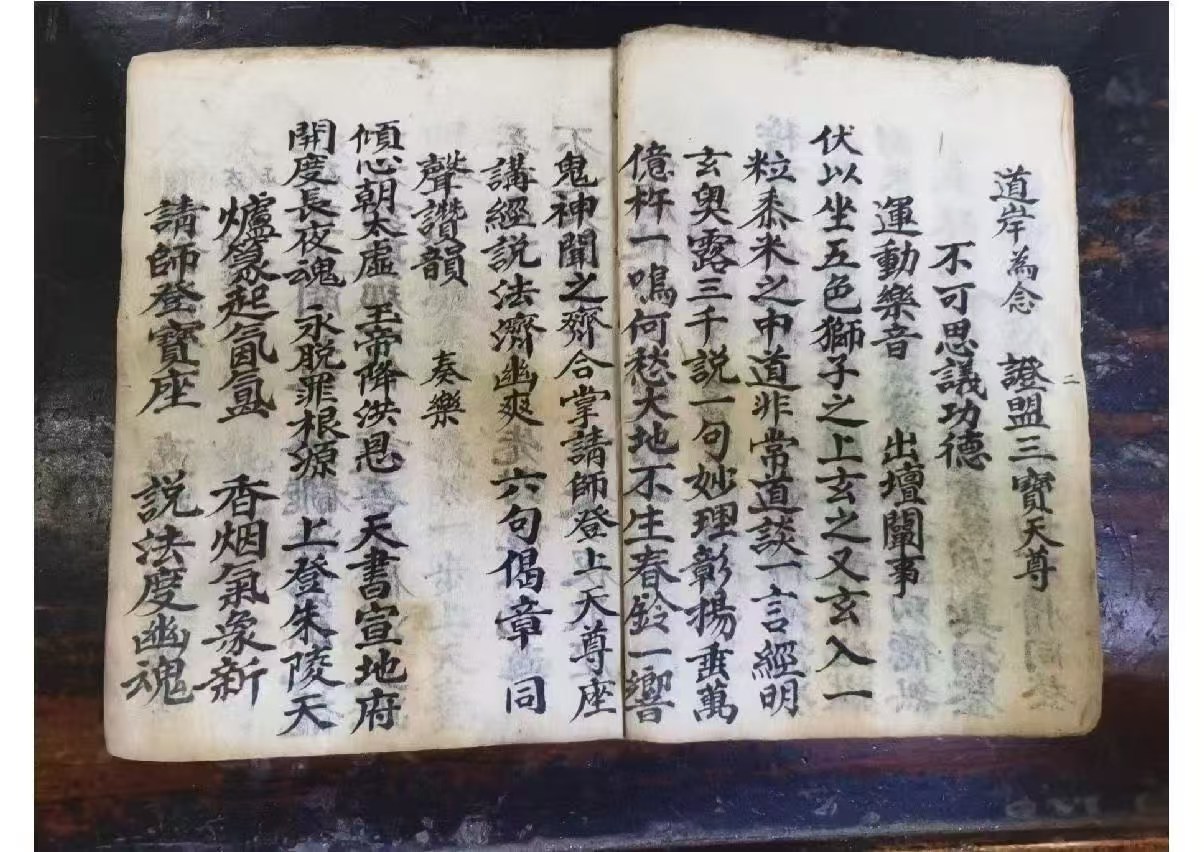 道岸為念　證盟三寶天尊
不可思議功德
運動樂音　出壇闡事
伏以坐五色獅子之上玄之又玄入一
粒黍米之中道非常道談一言經明
玄奧露三千說一句妙理彰揚垂萬
億杵一鳴何愁大地不生春鈴一響
鬼神聞之齊合掌請師登上天尊座
講經說法濟幽爽　六句偈章　同
聲讚韻　奏樂
傾心朝太虛　玉帝降洪恩　天書宣地府
開度長夜魂　永脫罪根源　上登朱陵天
爐篆起氤氳　香烟氣象新
請師登寶座　說法度幽魂
二